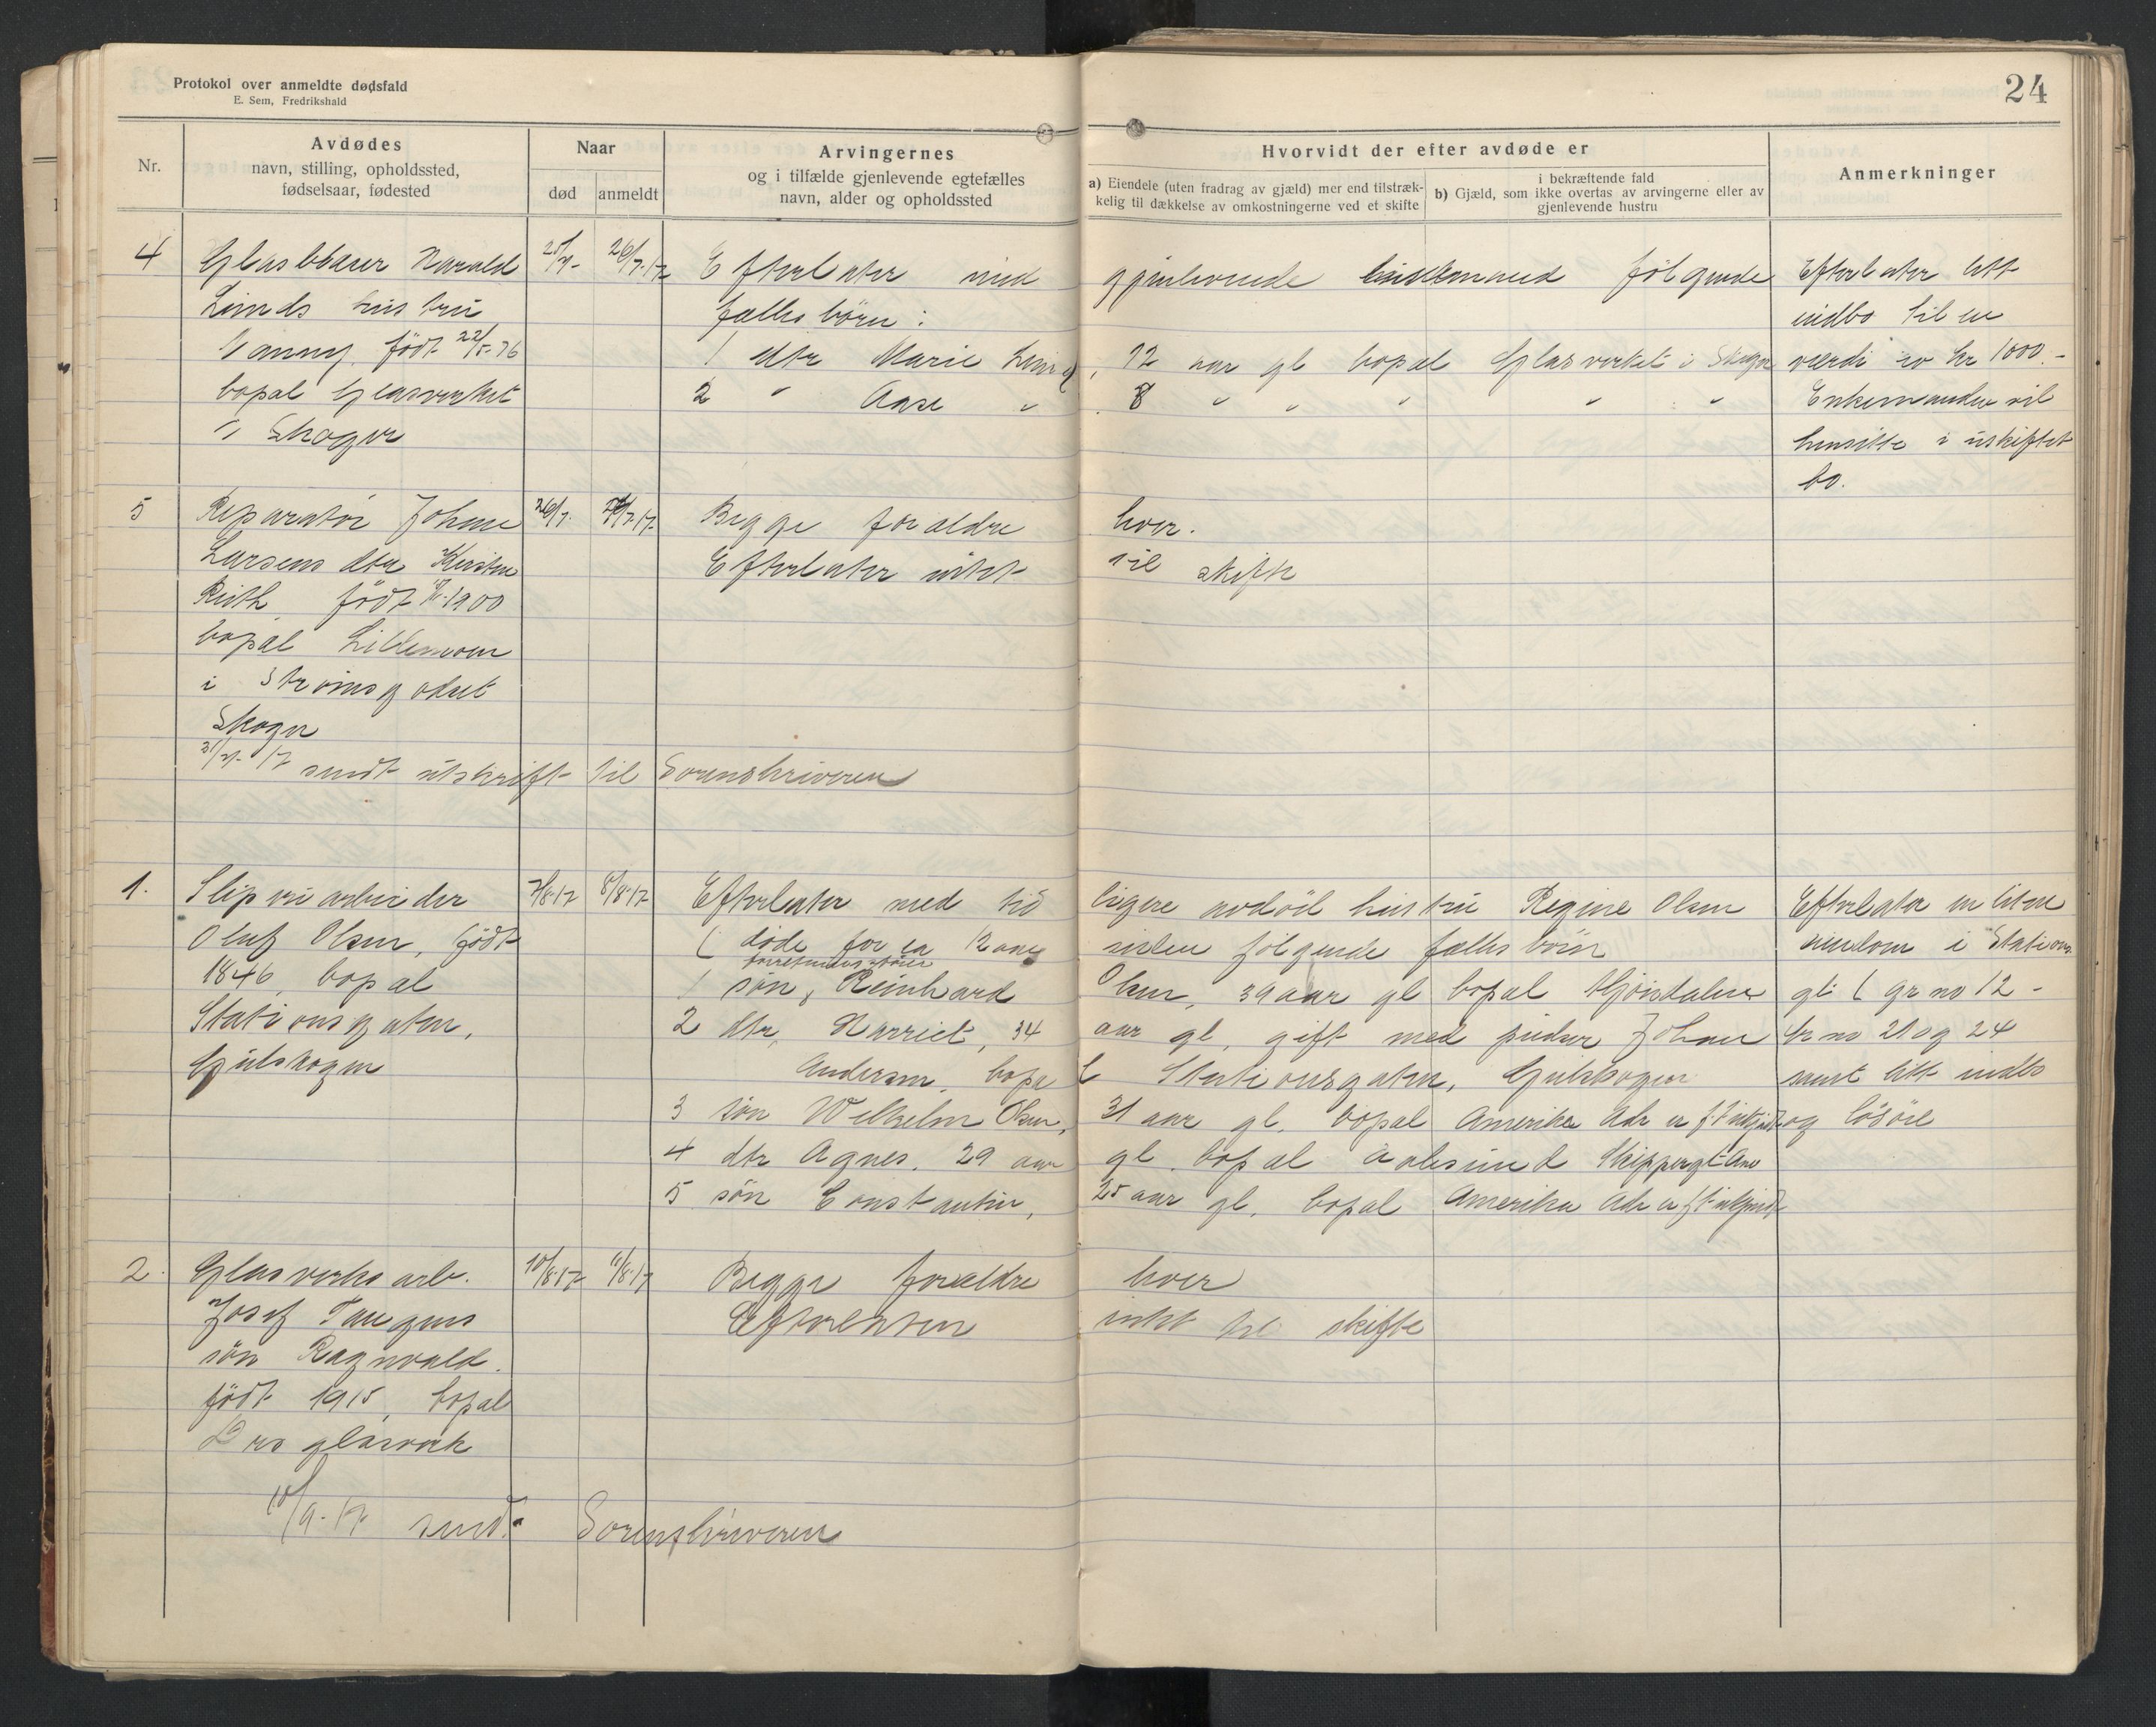 Protokol over anmeldte dødsfald
E. Sem, Fredrikshald
24
Nr.
Avdødes
navn, stilling, opholdssted,
fødselsaar, fødested
Naar
død
anmeldt
Arvingernes
og i tilfælde gjenlevende egtefælles
navn, alder og opholdssted
Hvorvidt der efter avdøde er
a) Eiendele (uten fradrag av gjæld) mer end tilstræk-
kelig til dækkelse av omkostningerne ved et skifte
i bekræftende fald
b) Gjæld, som ikke overtas av arvingerne eller av
gjenlevende hustru
Anmerkninger
4 Glasblaser Harald 26/7-17 Efterlater med gjenlevende følgende Efterlater litt
Linds hustru fælles børn: indbo til en
født 22/5-76 1 dtr Marie Lind, 12 aar gl bopæl Glasverket i Skoger værdi av kr 1000.-
bopæl Glasverket 2 " Aase " 8 " " " " " Enkemanden vil
i Skoger hensitte i uskiftet
bo.
5 Reparatør Johne 26/7- Begge foraldre lever.
Larsens dtr Kirsten Efterlater intet til skifte
Ruth født 1900
bopæl Lillemoen
i Strømsgodset
Skoger
31/7-17 sendt utskrift til Sorenskriveren
1. Sliperiarbeider 7/8-17 8/8-17 Efterlater med tidligere avdød hustru Regine Olsen Efterlater en liten
Oluf Olsen, født ( døde for ca 12 aar siden følgende fælles børn eiendom i Stations
1846, bopæl 1 søn, Reinhard Olsen, 39 aar gl bopæl Mjøndalen gt. ( gr no 12 -
Stationsgaten, 2 dtr, Harriet, 34 aar gl, gift med Johan br no 21 og 24
Gulskogen Andersen, bopæl Stationsgaten, Gulskogen samt litt indbo
3 søn Wilhelm Olsen, 31 aar gl. bopæl Amerika Adr er f.t. ukjendt og løsøre
4 dtr Agnes, 29 aar gl. bopæl Aalesund
5 søn Constantin, 25 aar gl. bopæl Amerika Adr er f.t. ukjendt
2. Glasverks arb. 10/8-17 11/8-17 Begge forældre lever
Josef Tangens Efterlater intet til skifte
søn Ragnvald.
født 1915, bopæl
Drs glasverk
10/9-17 sendt Sorenskriveren